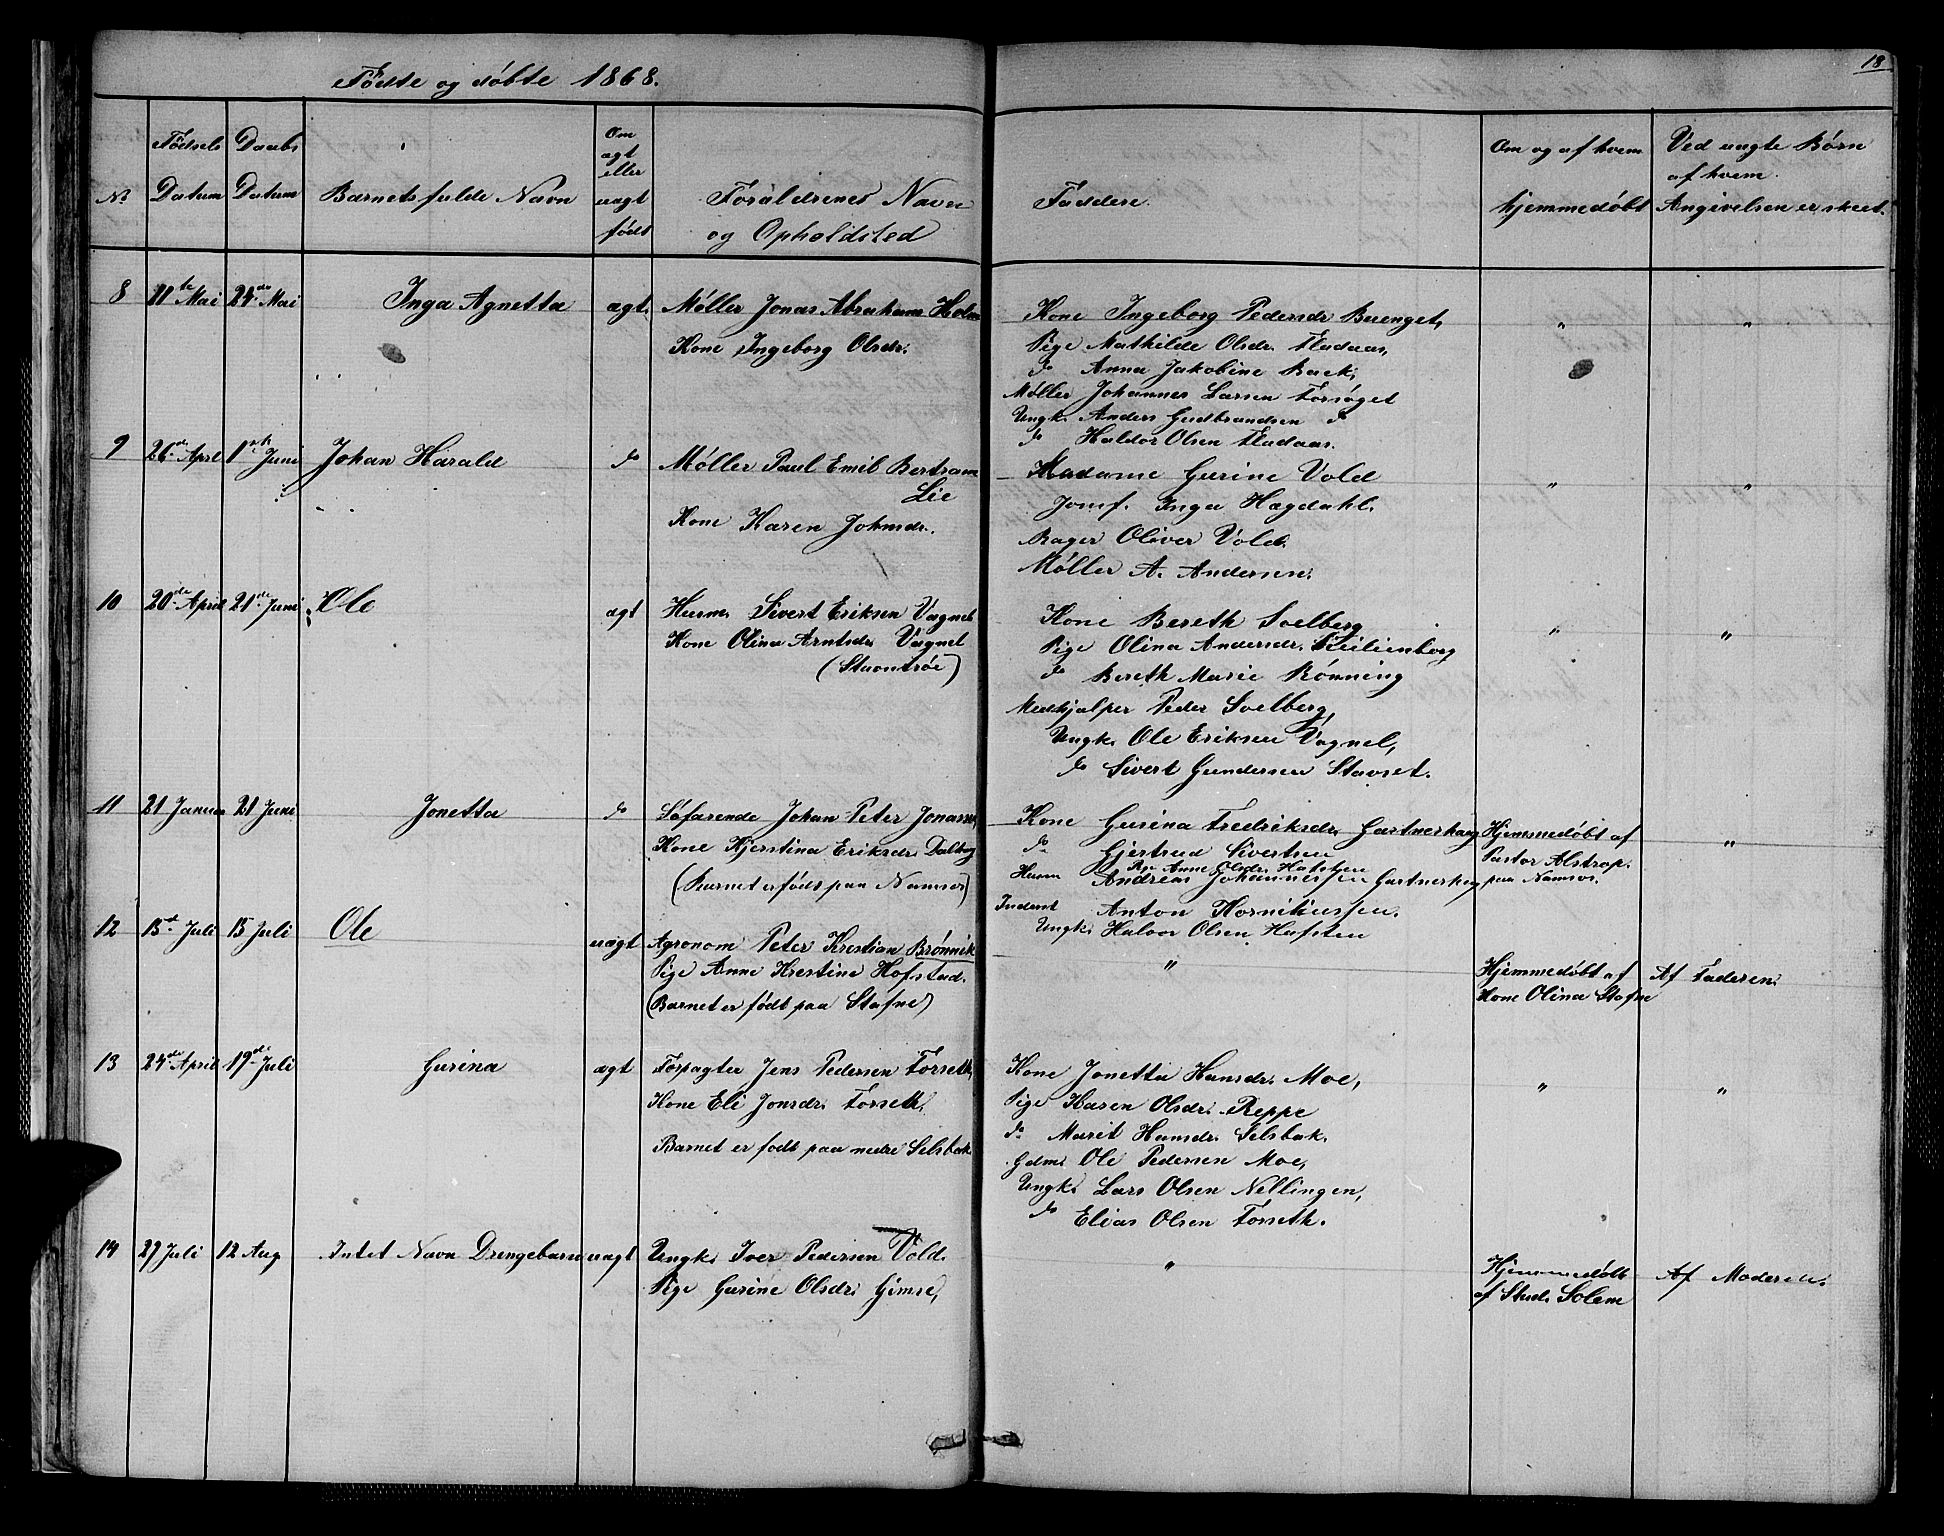 Fødte og døbte 1868.
18
No
Fødsels Datum
Daabs Datum
Barnets fulde Navn
Om ægt eller uægt født
Forældrenes Navn
og Opholdsted
Faddere.
Om og af hvem
hjemmedøbt
Ved uægte Børn
af hvem
Angivelsen er skeet.
8 11te Mai 24de Mai Inga Agnetta ægt. Møller Jonas Abraham Holm
Kone Ingeborg Olsdr.
Kone Ingeborg Pedersdr Buenget,
Pige Mathilde Olsdr. Fladaas,
do Anna Jakobine Back,
Møller Johannes Larsen Forsøget
Ungk. Anders Gudbrandsen do
do Haldor Olsen Fladaas.
" "
9 26de April 1ste Juni Johan Harald do Møller Paul Emil Bertram
Lie
Kone Karen Johnsdr.
Madame Gurine Vold
Jomf. Inga Hægdahl.
Bager Oliver Vold.
Møller A. Andersen.
" "
10 20de April 21de Juni Ole ægt Husm. Sivert Eriksen Vagnel
Kone Olina Arntsdr. Vagnel
(Stavntrøe)
Kone Bereth Solberg
Pige Olina Andersdr.
do Bereth Marie Rønning
Medhjælper Peder Solberg,
Ungk. Ole Eriksen Vagnel,
do Sivert Gundersen Stavset.
" "
11 21 Januar 21 Juni Jonetta do Søfarende Johan Peter Jonassen,
Kone Kjerstina Eriksdr. Dalhoug
(Barnet er født paa Namsos)
Kone Gurina Fredriksdr. Gartnerhaug
do Gjertrud Sivertsen
Pige Anne Olsdr. Hafsten
Husm Andreas Johannessen Gartnerhaug
Inderst Anton Korniliussen.
Ungk. Halvor Olsen Hafsten
Hjemmedøbt af
Pastor Alstrop.
paa Namsos.
"
12 15de Juli 15 Juli Ole uægt Agronom Peter Kristian Brønnik
Pige Anne Krestine Hofstad.
(Barnet er født paa Stafne)
"
Hjemmedøbt af
Kone Olina Stafne
Af Faderen.
13 24de April 19de Juli Gurina ægt Forpagter Jens Pedersen Forseth,
Kone Eli Jonsdr. Forseth,
Barnet er født paa nedre Selsbak
Kone Jonetta Hansdr. Moe,
Pige Karen Olsdr. Reppe
do Marit Hansdr. Selsbak.
Gdm. Ole Pedersen Moe,
Ungk. Lars Olsen Nellingen,
do Elias Olsen Forseth.
" "
14 27 Juli 12 Aug Intet Navn Drengebarn uægt Ungk. Iver Pedersen Vold.
Pige Gurine Olsdr. Gimse,
"
Hjemmedøbt
af Stud. Solem
Af Moderen.